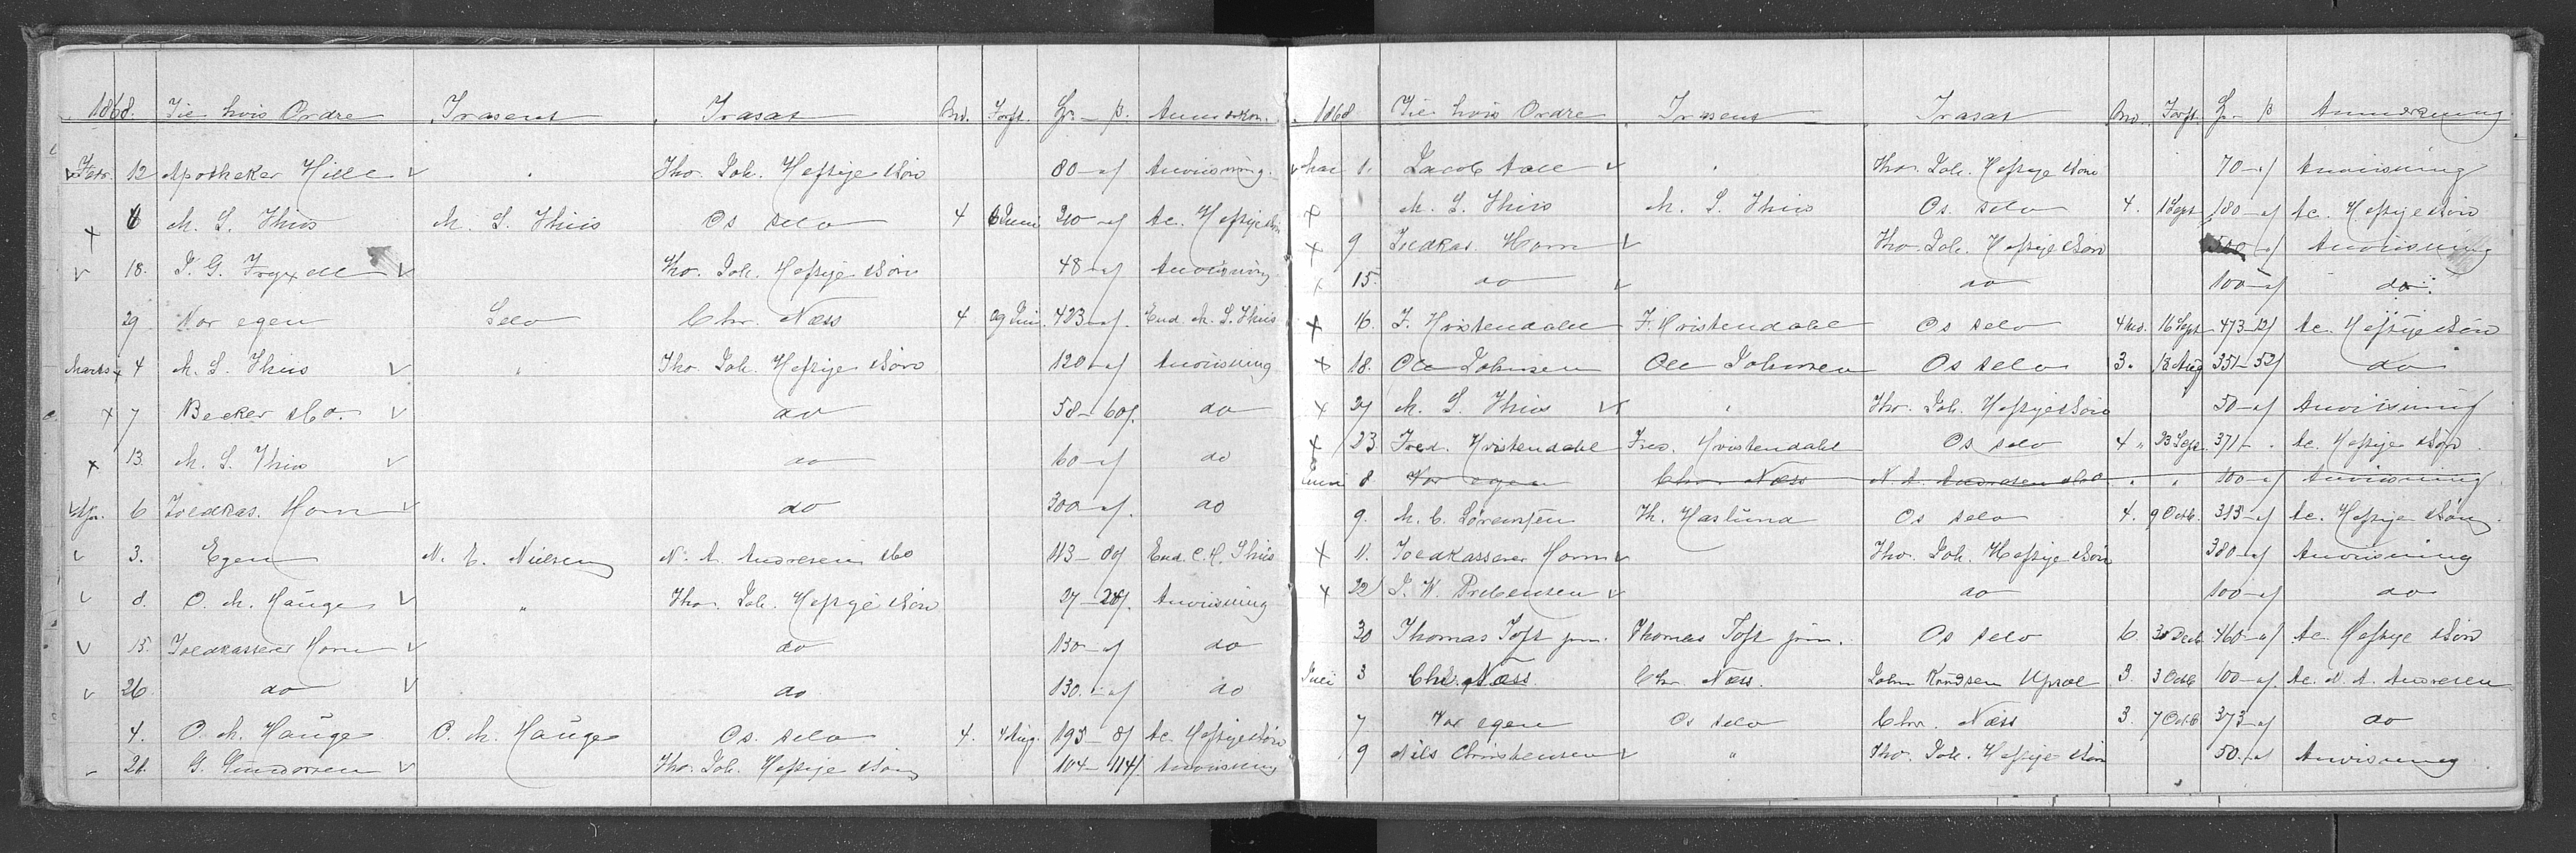 1868. Til hvis Ordre Trasent Trasat Md. Forft. Spr. – β. Anmærkn.
Febr. 12 Apotheker Hille Tho. Joh. Heftye & Søn 80 – " Anviisning.
6 M. S. Thiis M. S. Thiis Os selv 4 6 Juni 210 – " Ac. Heftye & Søn
18. Tho. Joh. Heftye & Søn 48 – " Anviisning
29 Vor egen Selv Chr. Næss 4 29 Juni 423 – " End. M. S. Thiis
Marts 4 M. S. Thiis Tho. Joh. Heftye & Søn 120 – " Anviisning
7 Becker & Co. do 58 – 60 do
13. M. S. Thiis do 60 – " do
Apr. 6 Toldkas. Horn do 300 – " do
3. Egen N. E. Nielsen N. A. Andresen & Co 113 – 80 End. C. H. Thiis
8. O. M. Hauge " Tho. Joh. Heftye & Søn 27 – 28 Anviisning
15. Toldkasserer Horn do 130 – " do
26. do do 130 – " do
4. O. M. Hauge O. M. Hauge Os selv 4. 4 Aug. 195 – 8 Ac. Heftye & Søn
21. G. Gundersen Tho. Joh. Heftye & Søn 104 – 114 Anviisning
1868 Til hvis Ordre Trasent Trasat Md. Forft. Spr – β Anmærkning
Mai 1. Jacob Aall Tho. Joh. Heftye & Søn 70 – " Anviisning
M. S. Thiis M. S. Thiis Os selv 4. 1 Sept 180 – " Ac. Heftye & Søn
9 Toldkas. Horn Tho. Joh. Heftye & Søn Anviisning
15. do do 100 – " do
16. F. Hvistendahl F. Hvistendahl Os selv 4 Md. 16 Sept 473 – 12 Ac. Heftye & Søn
18. Ole Johnsen Ole Johnsen Os selv 3. 18 Aug 351 – 52 do
27 M. S. Thiis Tho. Joh. Heftye & Søn 50 – " Anviisning
23. Fred. Hvistendahl Fred. Hvistendahl Os selv 4 " 23 Sept. 371 – . Ac. Heftye & Søn.
Juni 8 Vor egen Chr. Næss N. A. Andresen & Co " " 100 – " Anviisning.
9. M. C. Sørensen Th. Haslund Os selv 4. 9 Octb. 313 – " Ac. Heftye & Søn.
11. Toldkasserer Horn Tho. Joh. Heftye & Søn 380 – " Anviisning
22 J. W. Prebensen do 100 – " do
30 Thomas Toft jun. Thomas Toft jun. Os selv 6. 30 Decb 460 – " Ac. Heftye & Søn
Juli 3 Chr. Næss. Chr. Næss. John Knudsen 3. 3 Octb 100 – " Ac. N. A. Andresen
7 Vor egen Os selv Chr. Næss 3. 7 Octb 373 – " do
9 Nils Christensen " Tho. Joh. Heftye & Søn 50 – " Anviisning